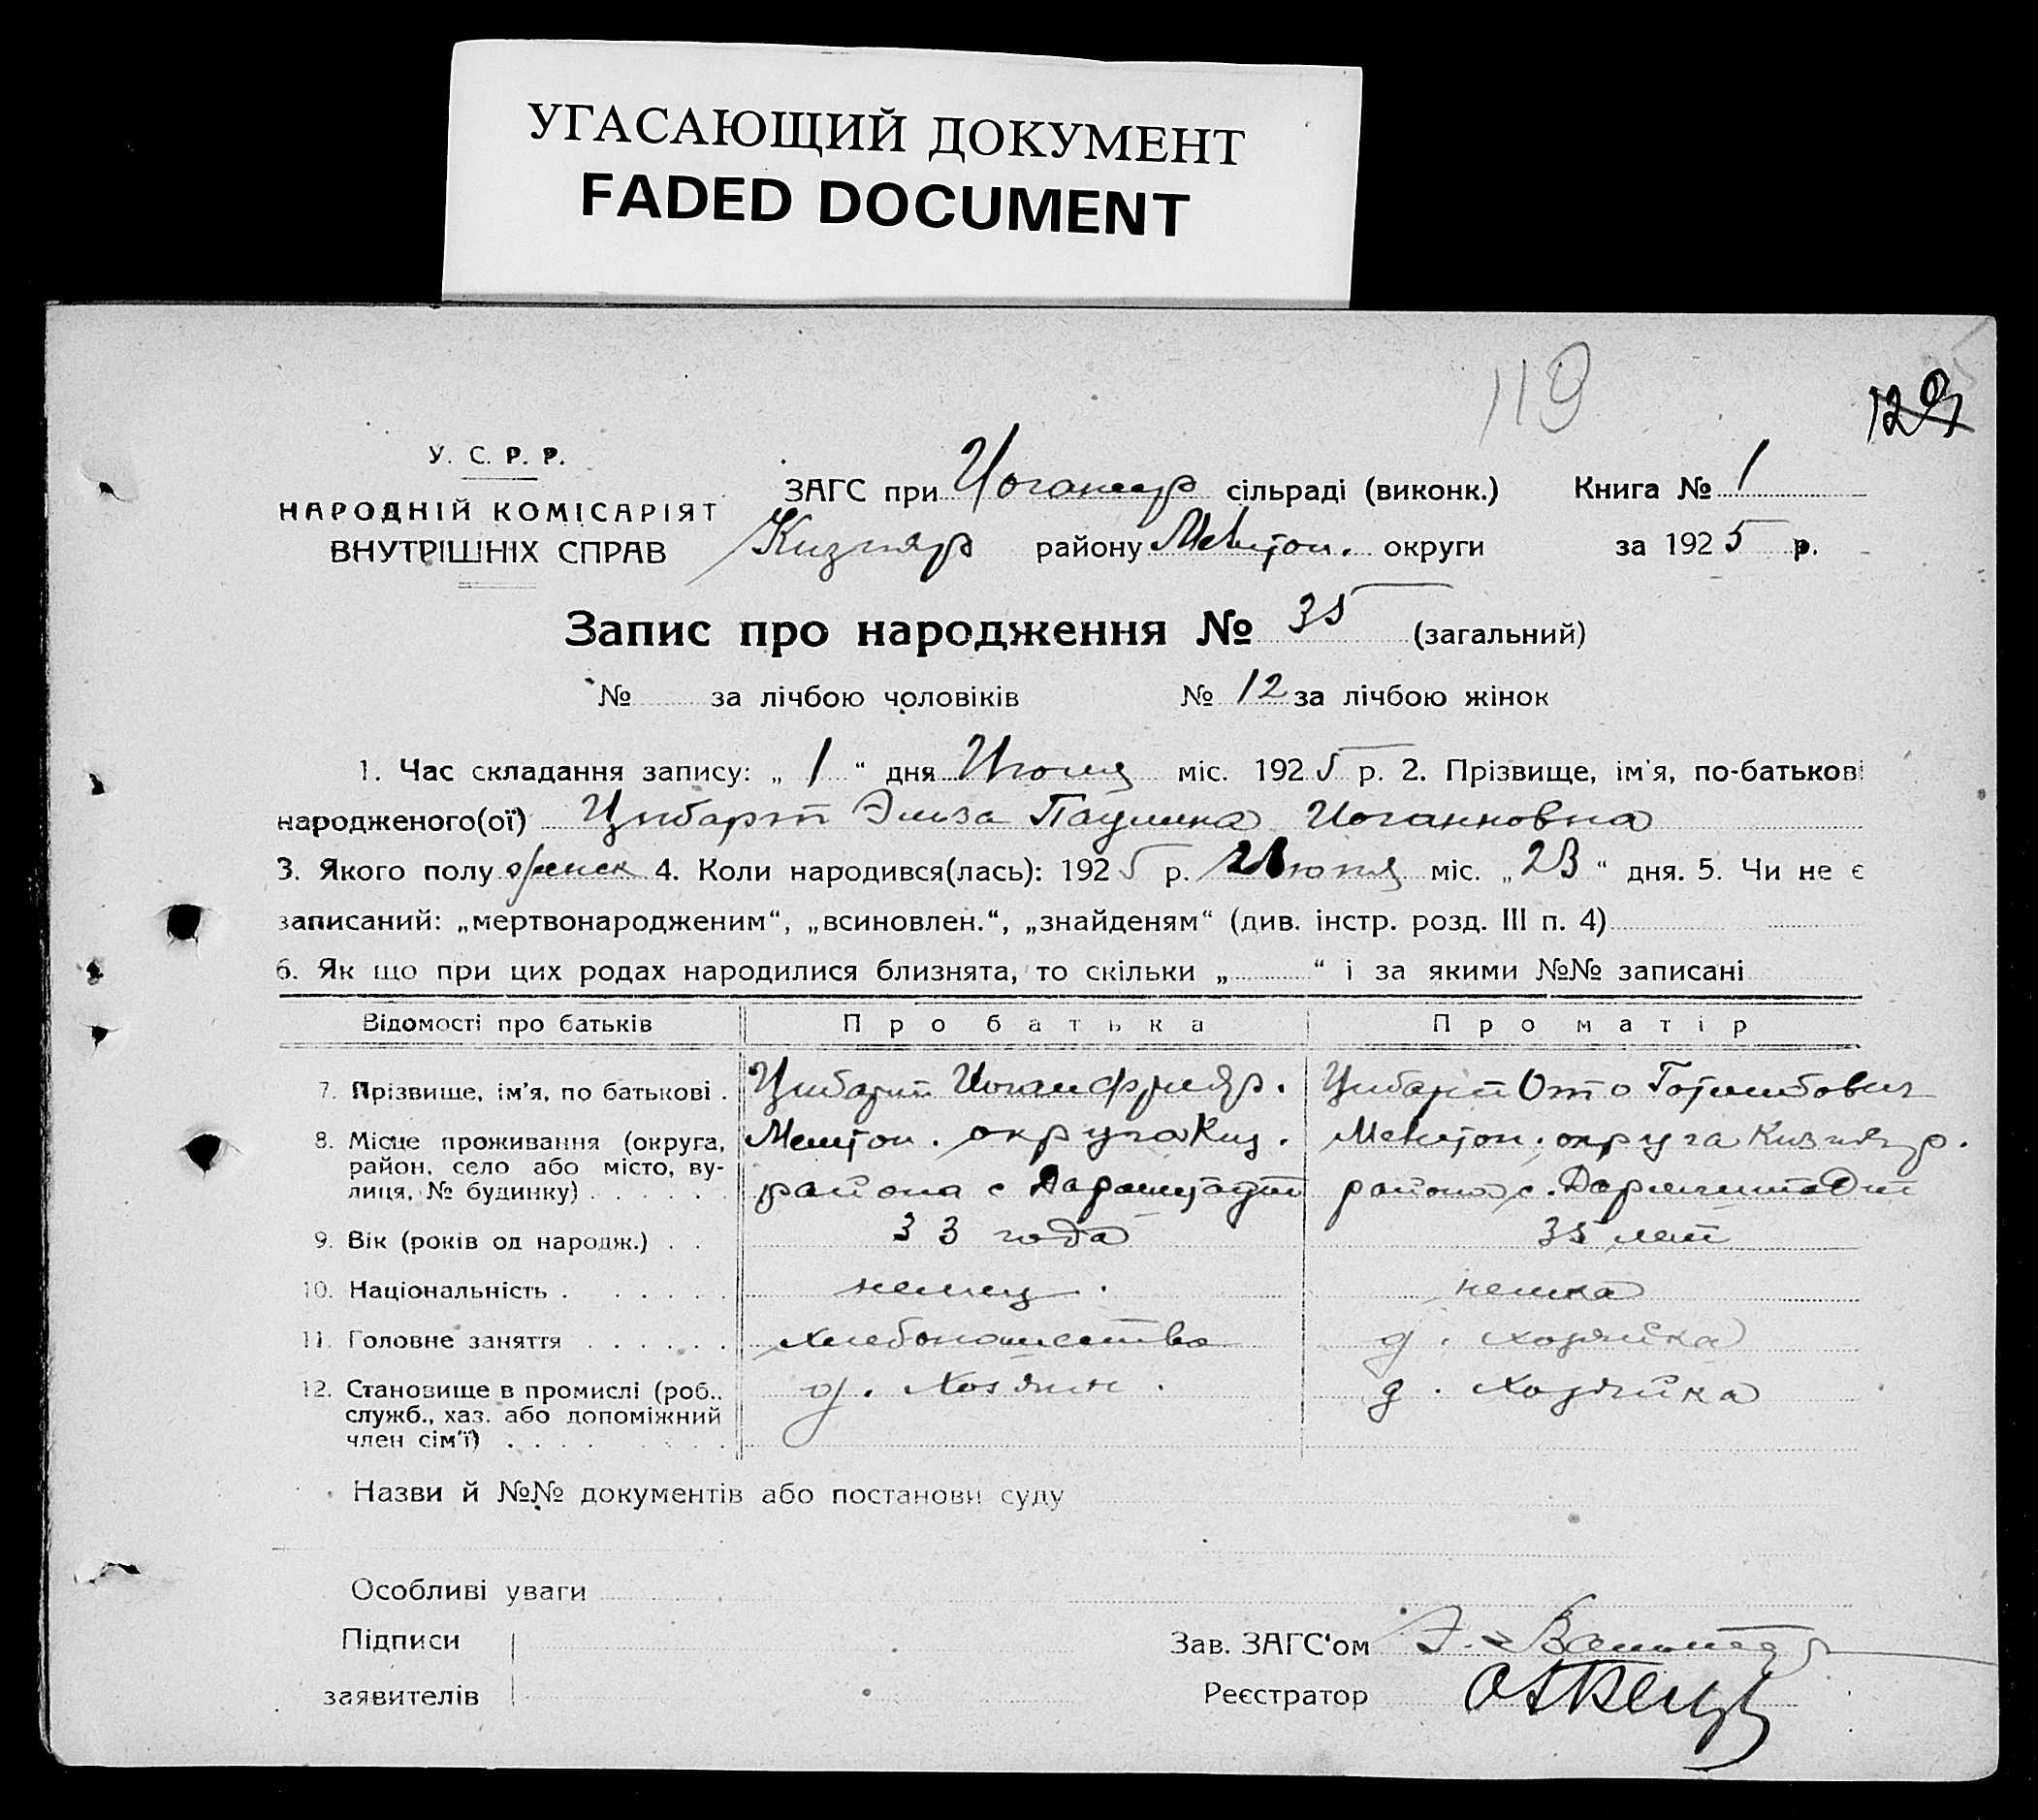 УГАСАЮЩИЙ ДОКУМЕНТ
FADED DOCUMENT
119
У. С. Р. Р.
НАРОДНІЙ КОМІСАРІЯТ
ВНУТРІШНІХ СПРАВ
ЗАГС при сільраді (виконк.) Книга № 1
Кизияр району Мелитоп. округи за 1925 р.
Запис про народження № 35 (загальний)
№ за лічбою чоловіків № 12 за лічбою жінок
1. Час складання запису: „ 1 “ дня Июля міс. 1925 р. 2. Прізвище, ім'я, по-батькові
народженого(ої) Цибарт Эльза Паулина Иоганновна
3. Якого полу женск 4. Коли народився(лась): 1925 р. Июня міс. „ 23 “ дня. 5. Чи не є
записаний: „мертвонародженим“, „всиновлен.“, „знайденям“ (див. інстр. розд. III п. 4)
6. Як що при цих родах народилися близнята, то скільки „ “ і за якими №№ записані
Відомості про батьків Про батька Про матір
7. Прізвище, ім'я, по батькові . Цибарт Иоган Фридр. Цибарт Отто Готлибович
8. Місце проживання (округа, Мелитоп. округа Киз. Мелитоп. округа Кизияр.
район, село або місто, ву-
лиця, № будинку) . . . . . . района с Дармштадт района с. Дармштадт
9. Вік (років од народж.) . . 33 года 35 лет
10. Національність . . . . . . немец. немка
11. Головне заняття . . . . . . хлебопашество д. хозяйка
12. Становище в промислі (роб., д. хозяин. д. хозяйка
служб., хаз. або допоміжний
член сім'ї) . . . .
Назви й №№ документів або постанови суду
Особливі уваги
Підписи
заявителів
Зав. ЗАГС'ом
Реєстратор